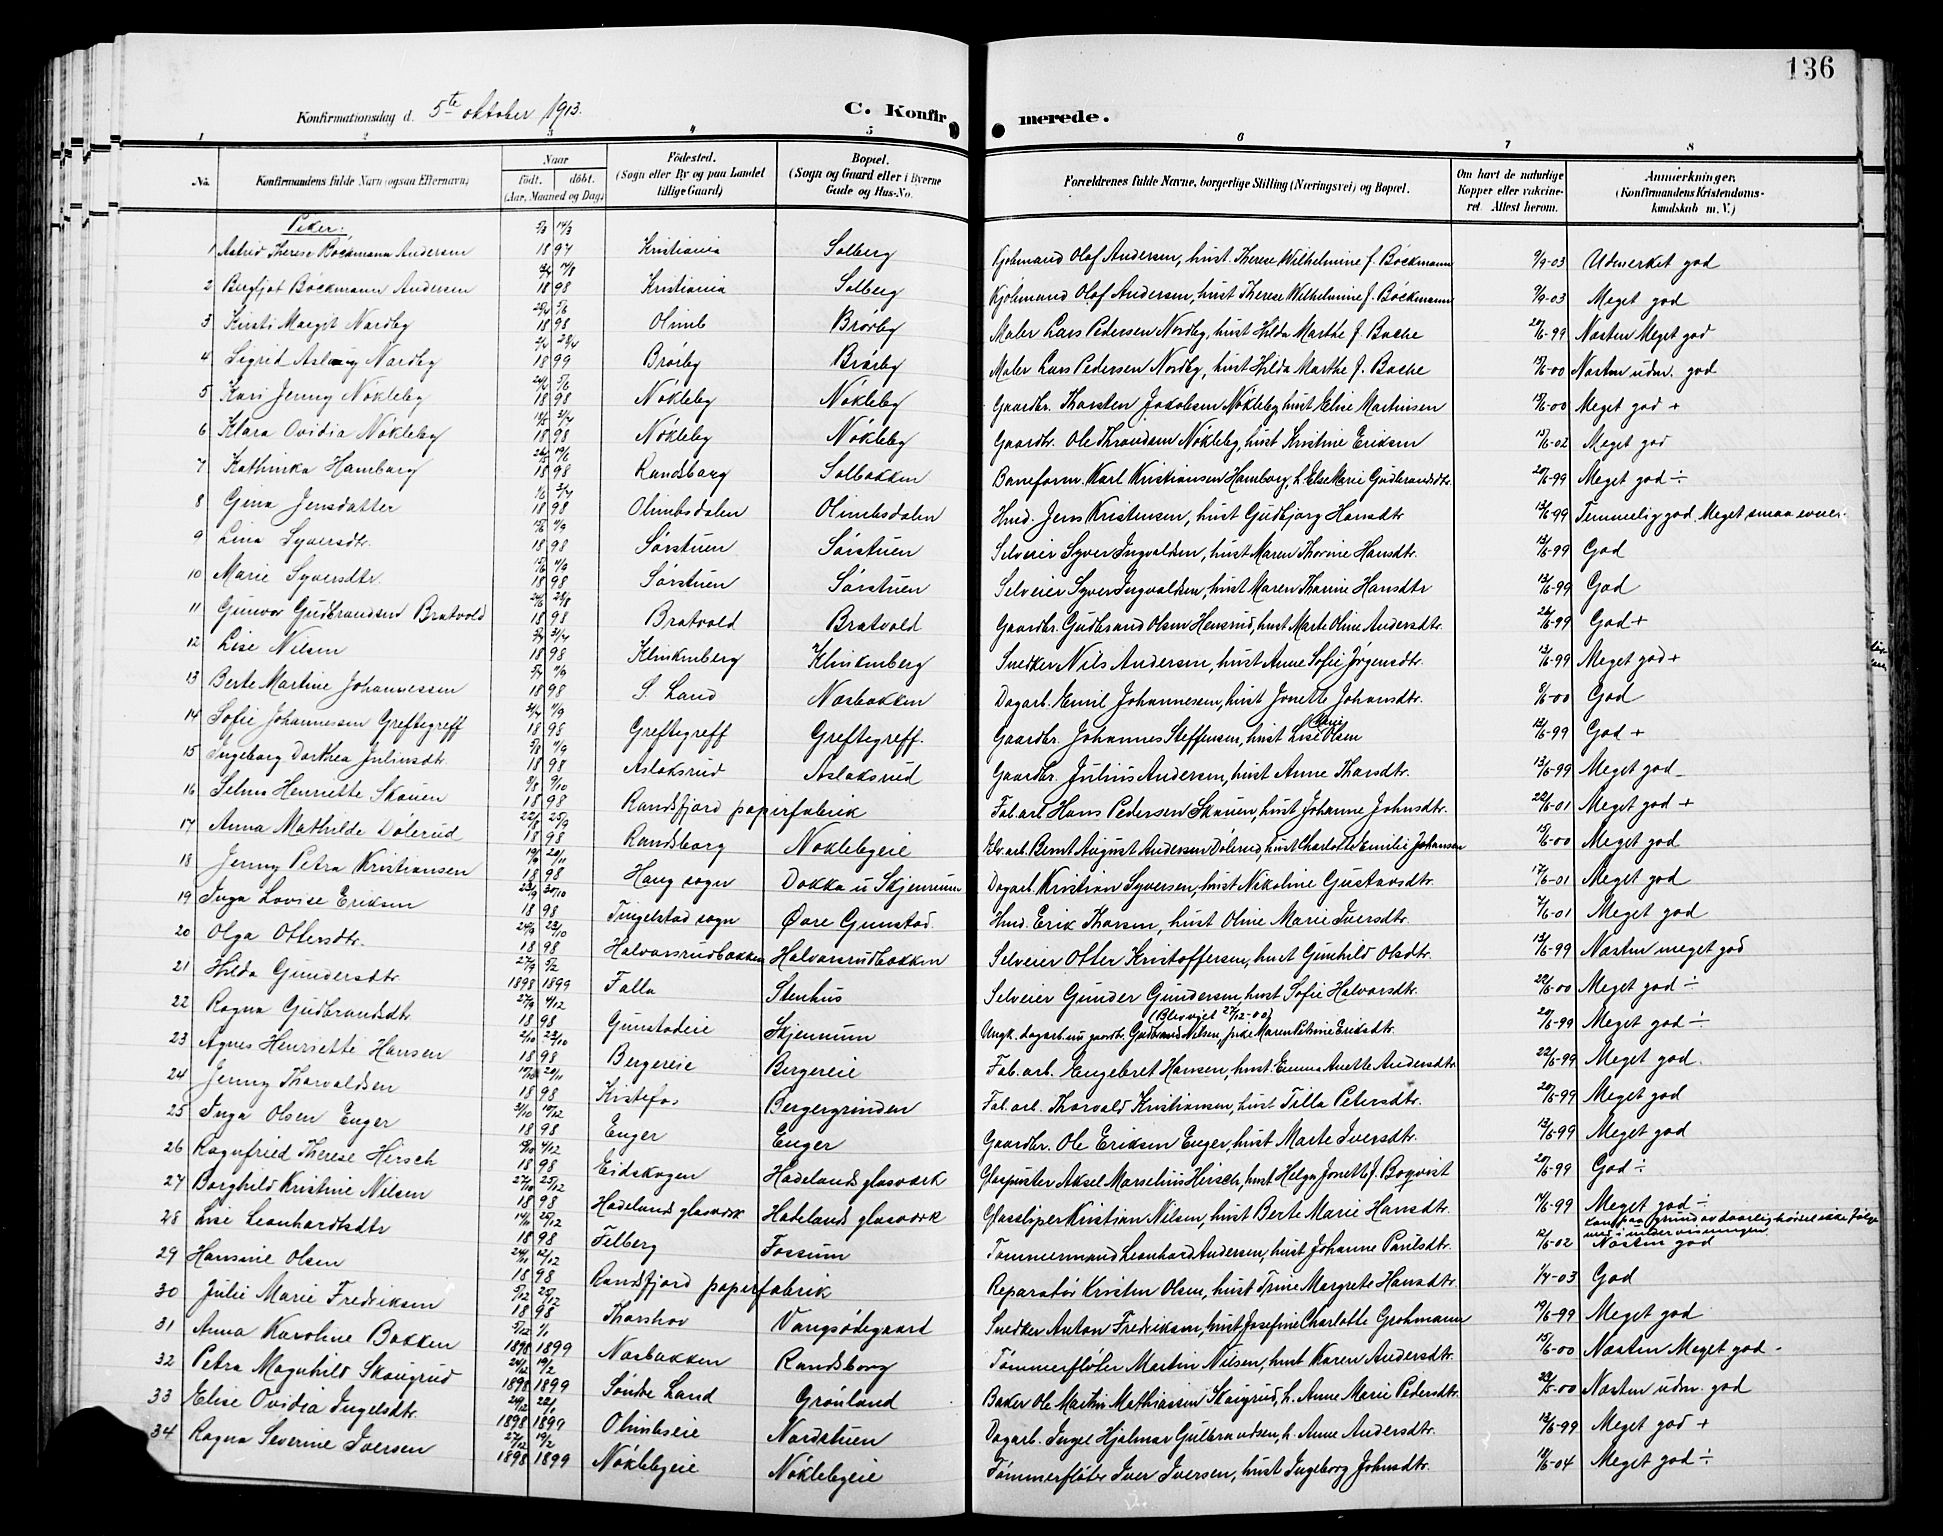 136
Konfirmationsdag d. 5te oktober 1913.
C. Konfirmerede.
1 2 3 4 5 6 7 8
No. Konfirmandens fulde Navn (ogsaa Efternavn) Naar født. døbt. (Aar, Maaned og Dag) Födested. (Sogn eller By og paa Landet tillige Gaard) Bopæl. (Sogn og Gaard eller i Byerne Gade og Hus-No. Forældrenes fulde Navne, borgerlige Stilling (Næringsvei) og Bopæl. Om havt de naturlige Kopper eller vakcineret. Attest herom. Anmerkninger. (Konfirmandens Kristendomskundskab m. V.)
Piker:
1 Astrid Therese Böckmann Andersen 1897 Kristiania Solberg Kjøbmand Olaf Andersen, hust. Therese Wilhelmine f. Böckmann 9/9-03 Udmerket god
2 Bergljot Böckmann Andersen 1898 Kristiania Solberg Kjøbmand Olaf Andersen, hust Therese Wilhelmine f. Böckmann 9/9-03 Meget god
3 Kirsti Margit Nordby 1898 Olimb Brörby Maler Lars Pedersen Nordby, hust Hilda Marthe f. Bache 20/6-99 Næsten Meget god
4 Sigrid Aslaug Nordby 1899 Brörby Brörby Maler Lars Pedersen Nordby, hust Hilda Marthe f. Bache 15/6-00 Næsten udm. god
5 Kari Jenny Nökleby 1898 Nökleby Nökleby Gaardbr. Thorsten Jakobsen Nökleby hust Elise Martinsen 15/6-00 Meget god +
6 Klara Ovidia Nökleby 1898 Nökleby Nökleby Gaardbr. Ole Throndsen Nökleby, hust Kristine Eriksen 15/6-02 Meget god
7 Kathinka Hamborg 1898 Randsborg Solbakken Baneform. Karl Kristiansen Hamborg, h. Else Marie Gudbrandsdtr. 20/6-99 Meget god ÷
8 Gina Jensdatter 1898 Olimbsdalen Olimbsdalen Hmd. Jens Kristensen, hust Gudbjørg Hansdtr 13/6-99 Temmelig god. Meget smaa evner.
9 Lina Syversdtr. 1898 Sörstuen Sörstuen Selveier Syver Ingvaldsen, hust Maren Thorine Hansdtr. 13/6-99 God
10 Marie Syversdtr. 1898 Sörstuen Sörstuen Selveier Syver Ingvaldsen, hust Maren Thorine Hansdtr 13/6-99 God
11 Gunvor Gudbrandsen Bratvold 1898 Bratvold Bratvold Gaardbr. Gudbrand Olsen Hensrud, hust Marte Oline Andersdtr. 26/6-99 God +
12 Lise Nilsen 1898 Klinkenberg Klinkenberg Snedker Nils Andersen, hust Anne Sofie Jørgensdtr. 13/6-99 Meget god +
13 Berte Martine Johannessen 1898 S. Land Næsbakken Dagarb. Emil Johannesen, hust Jonette Johansdtr. 8/6-00 God
14 Sofie Johannessen Greftegreff 1898 Greftegreff Greftegreff. Gaardbr. Johannes Steffensen, hust Lise Marie Olsen 12/6-99 God +
15 Ingeborg Dorthea Juliusdtr. 1898 Aslaksrud Aslaksrud Gaardbr. Julius Andersen, hust Anne Thorsdtr. 13/6-99 Meget god
16 Selma Henriette Skauen 1898 Randsfjord papirfabrik Fab.arb Hans Pedersen Skauen, hust Johanne Johnsdtr. 22/6-01 Meget god +
17 Anna Mathilde Dölerud 1898 Randsborg Nöklebyeie Elv.arb. Bernt August Andersen Dölerud, hust Charlotte Emilie Johansen 15/6-00 Meget god
18 Jenny Petra Kristiansen 1898 Haug sogn Dokka u Skjennum Dagarb. Kristian Syversen, hust Nikoline Gustavsdtr. 17/6-01 Meget god
19 Inga Lovise Eriksen 1898 Tingelstad sogn Øvre Gunstad Hmd. Erik Thorsen, hust Oline Marie Iversdtr. 7/6-01 Meget god
20 Olga Ottersdtr. 1898 Halvorsrudbakken Halvorsrudbakken Selveier Otter Kristoffersen, hust Gunhild Olsdtr. 13/6-99 Næsten meget god
21 Hilda Gundersdtr 1898 1899 Falla Stenhus Selveier Gunder Gundersen, hust Sofie Halvorsdtr. 22/6-00 Meget god ÷
22 Ragna Gudbrandsdtr 1898 Gunstadeie Skjennum (Blev viet 27/12-00) Ungk. dagarb. nu gaardbr. Gudbrand Nilsen, pike Maren Petrine Eriksdtr. 20/6-99 Meget god ÷
23 Agnes Henriette Hansen 1898 Bergereie Bergereie Fab.arb. Engebret Hansen, hust Emma Anette Andersdtr 22/6-99 Meget god.
24 Jenny Thorvaldsen 1898 Kistefos Bergergrinden Fab.arb. Thorvald Kristiansen, hust Tilla Petersdtr. 20/6-99 Meget god
25 Inga Olsen Enger 1898 Enger Enger Gaardbr. Ole Eriksen Enger, hust Marte Iversdtr. 13/6-99 Meget god
26 Ragnfried Therese Hirsch 1898 Eidskogen Hadelands glasværk Glaspuster Aksel Marselius Hirsch, hust Helga Jonette f. Boqvist 20/6-99 God ÷
27 Borghild Kristine Nilsen 1898 Hadelands glasværk Hadelands glasværk Glassliper Kristian Nilsen, hust Berte Marie Hansdtr. 14/6-99 Meget god ÷
28 Lise Leonhardtsdtr 1898 Felberg Fossum Tømmermand Leonhard Andersen, hust Johanne Paulsdtr. 12/6-02 Kan paa grund av daarlig hørsel ikke følge med i undervisningen. Næsten god
29 Hansine Olsen 1898 Randsfjord papirfabrik Reparatör Kristen Olsen, hust Trine Margrete Hansdtr. 1/4-03 God
30 Julie Marie Fredriksen 1898 Thorshov Vangsødegaard Snedker Anton Fredriksen, hust Josefine Charlotte Grohmann 19/6-99 Meget god
31 Anna Karoline Bakken 1898 1899 Næsbakken Randsborg Tømmerfløter Martin Nilsen, hust Karen Andersdtr. 15/6-00 Næsten Meget god
32 Petra Magnhild Skaugrud 1898 1899 Søndre Land Grönland Baker Ole Martin Mathiassen Skaugrud, h. Anne Marie Pedersdtr. 22/6-00 Næsten udm. god
33 Elise Ovidia Ingelsdtr. 1898 1899 Olimbseie Nordstuen Dagarb. Ingel Hjalmar Gulbrandsen, h. Anne Andersdtr. 13/6-99 Meget god +
34 Ragna Severine Iversen 1898 1899 Nöklebyeie Nöklebyeie Tømmerfløter Iver Iversen, hust Ingeborg Johnsdtr. 18/6-04 Meget god ÷